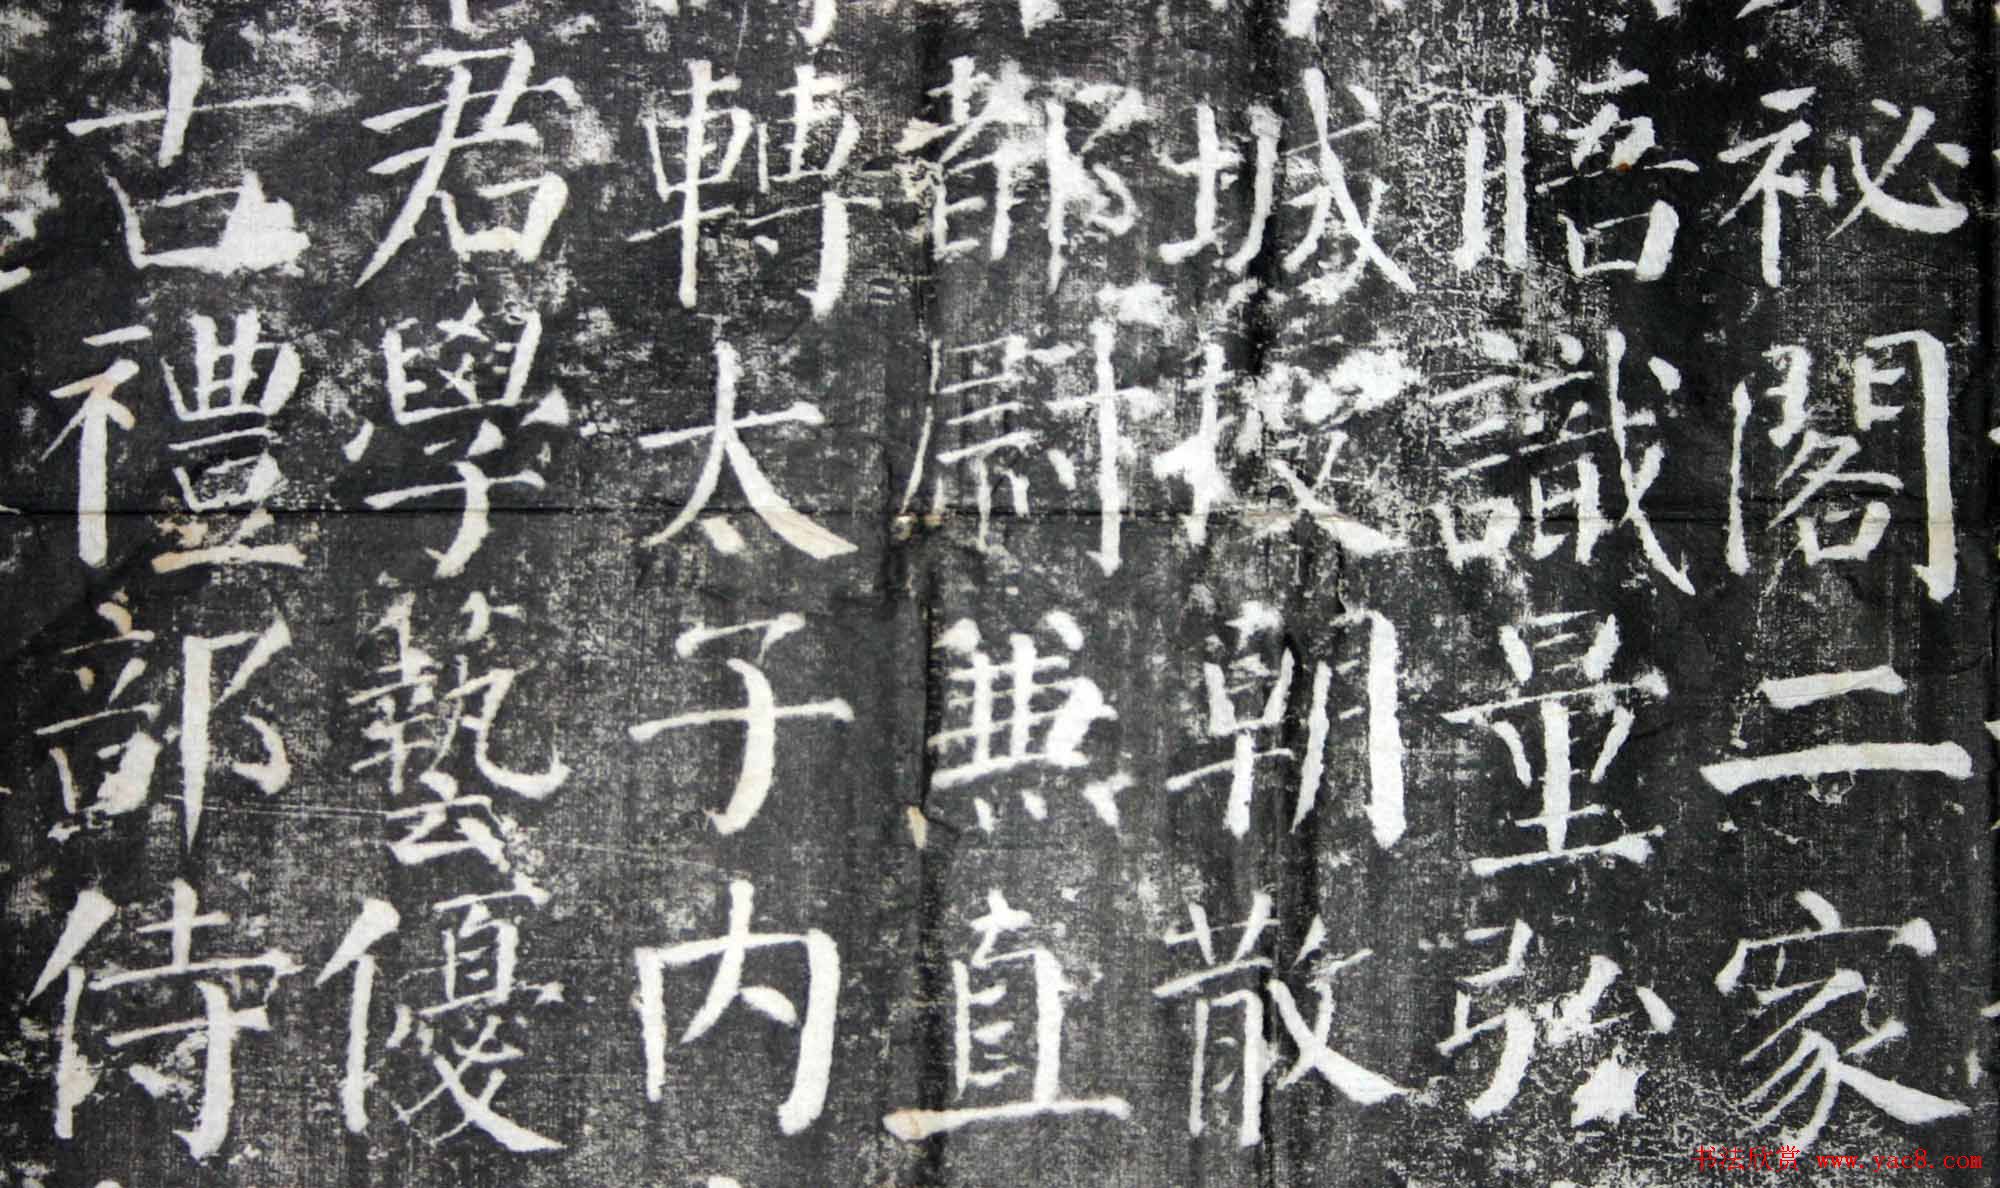 祕閣二家
晤識量弘
城授朝散
都尉兼直
轉太子內
君學藝優
古禮部侍
书法欣赏 www.yac8.com